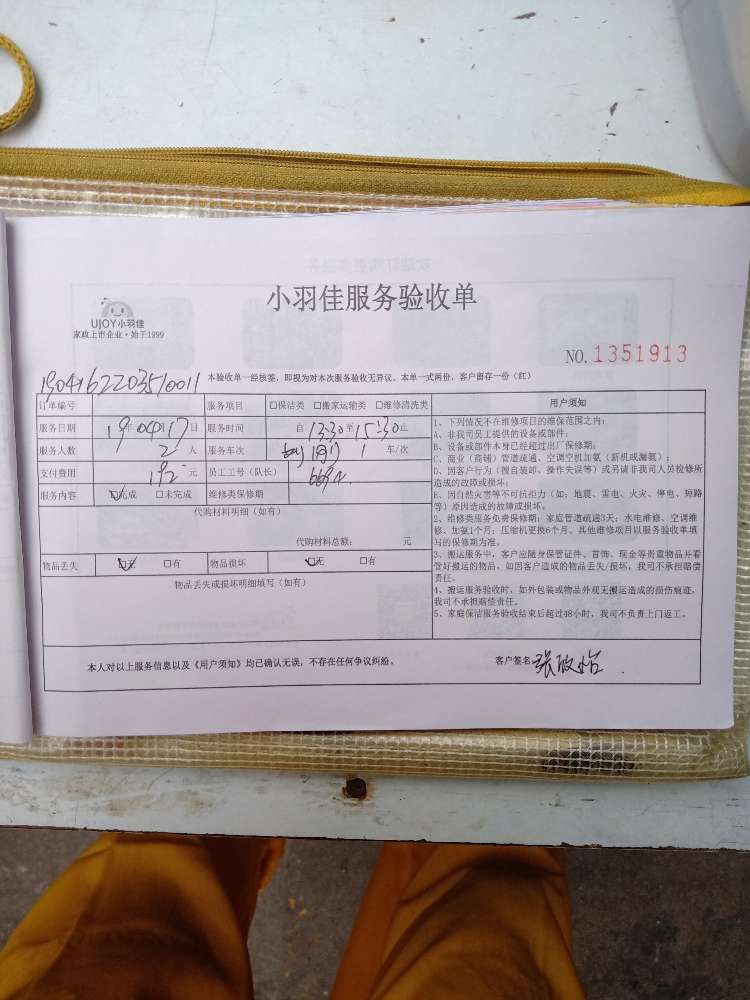 小羽佳服务验收单
UJOY小羽佳
家政上市企业·始于1999
NO.1351913
1904162203510011
本验收单一经核签,即视为对本次服务验收无异议。本单一式两份,客户留存一份(红)
订单编号 服务项目 □保洁类 □搬家运输类 □维修清洗类
服务日期 19年04月17日 服务时间 自13:30至15:30止
服务人数 2人 服务车次 1 车/次
支付费用 192元 员工工号(队长)
服务内容 ☑完成 □未完成 维修类保修期
代购材料明细(如有)
代购材料总额: 元
物品丢失 ☑无 □有 物品损坏 ☑无 □有
物品丢失或损坏明细填写(如有)
用户须知
1、下列情况不在维修项目的维保范围之内:
A、非我司员工提供的设备或部件;
B、设备或部件本身已经超过出厂保修期;
C、商业(商铺)管道疏通、空调空机加氨(新机或漏氨);
D、因客户行为(擅自装卸、操作失误等)或另请非我司人员检修所
造成的故障或损坏;
E、因自然灾害等不可抗拒力(如:地震、雷电、火灾、停电、短路
等)原因造成的故障或损坏。
2、维修类服务免费保修期:家庭管道疏通3天;水电维修、空调维
修、加氨1个月;压缩机更换6个月。其他维修项目以服务验收单填
写的保修期为准。
3、搬运服务中,客户应随身保管证件、首饰、现金等贵重物品并看
管好搬运的物品,如因客户造成的物品丢失/损坏,我司不承担赔偿
责任。
4、搬运服务验收时,如外包装或物品外观无搬运造成的损伤痕迹,
我司不承担赔偿责任。
5、家庭保洁服务验收结束后超过48小时,我司不负责上门返工。
本人对以上服务信息以及《用户须知》均已确认无误,不存在任何争议纠纷。
客户签名:张